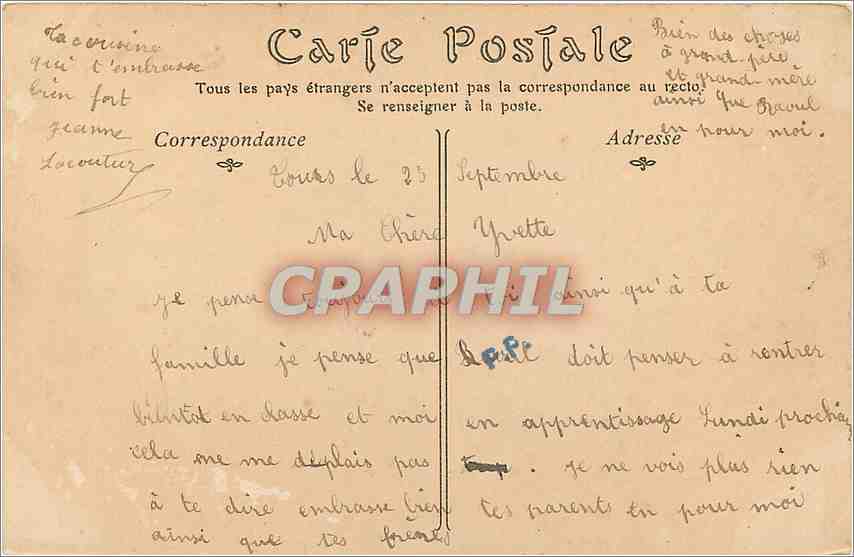 Carte Postale
Tous les pays étrangers n'acceptent pas la correspondance au recto.
Se renseigner à la poste.
Correspondance
Adresse
Tours le 25 Septembre
Ma Chère Yvette
je pense toujours à toi ainsi qu'à ta
famille je pense que doit penser à rentrer
bientot en classe et moi en apprentissage Lundi prochain
cela ne me déplais pas . je ne vois plus rien
à te dire embrasse bien tes parents en pour moi
ainsi que tes frères
Ta cousine
qui t'embrasse
bien fort
Jeanne
Lacoutur
Bien des choses
à grand-père
et grand-mère
ainsi que Raoul
en pour moi.
P.P.
CPAPHIL